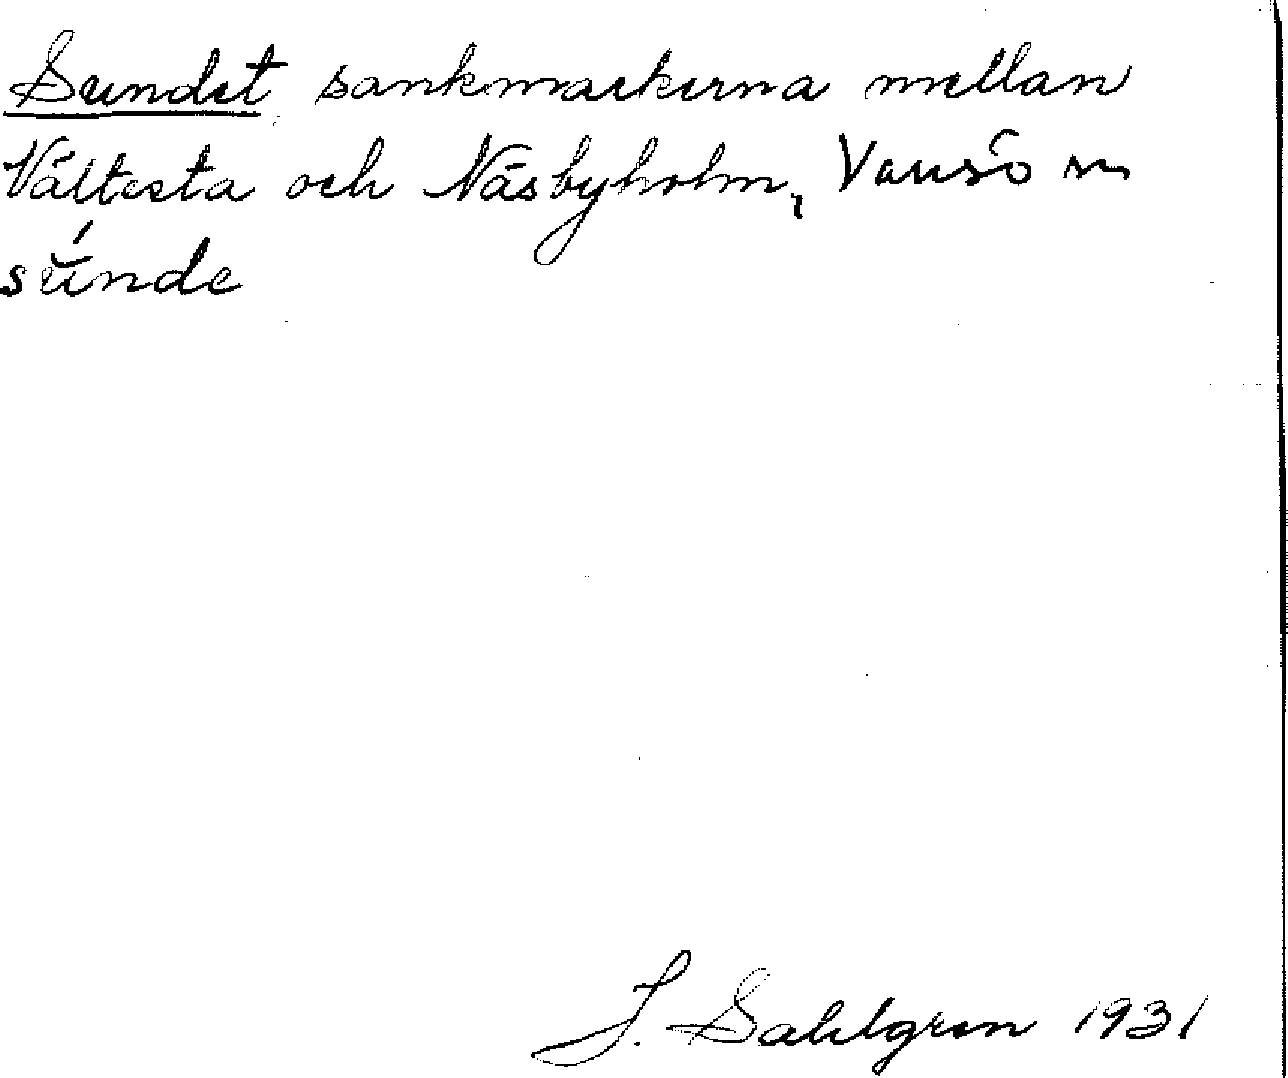 Sundet sankmarkerna mellan
Vältesta och Näsbyholm, Vansö sn
súnde
J. Sahlgren 1931